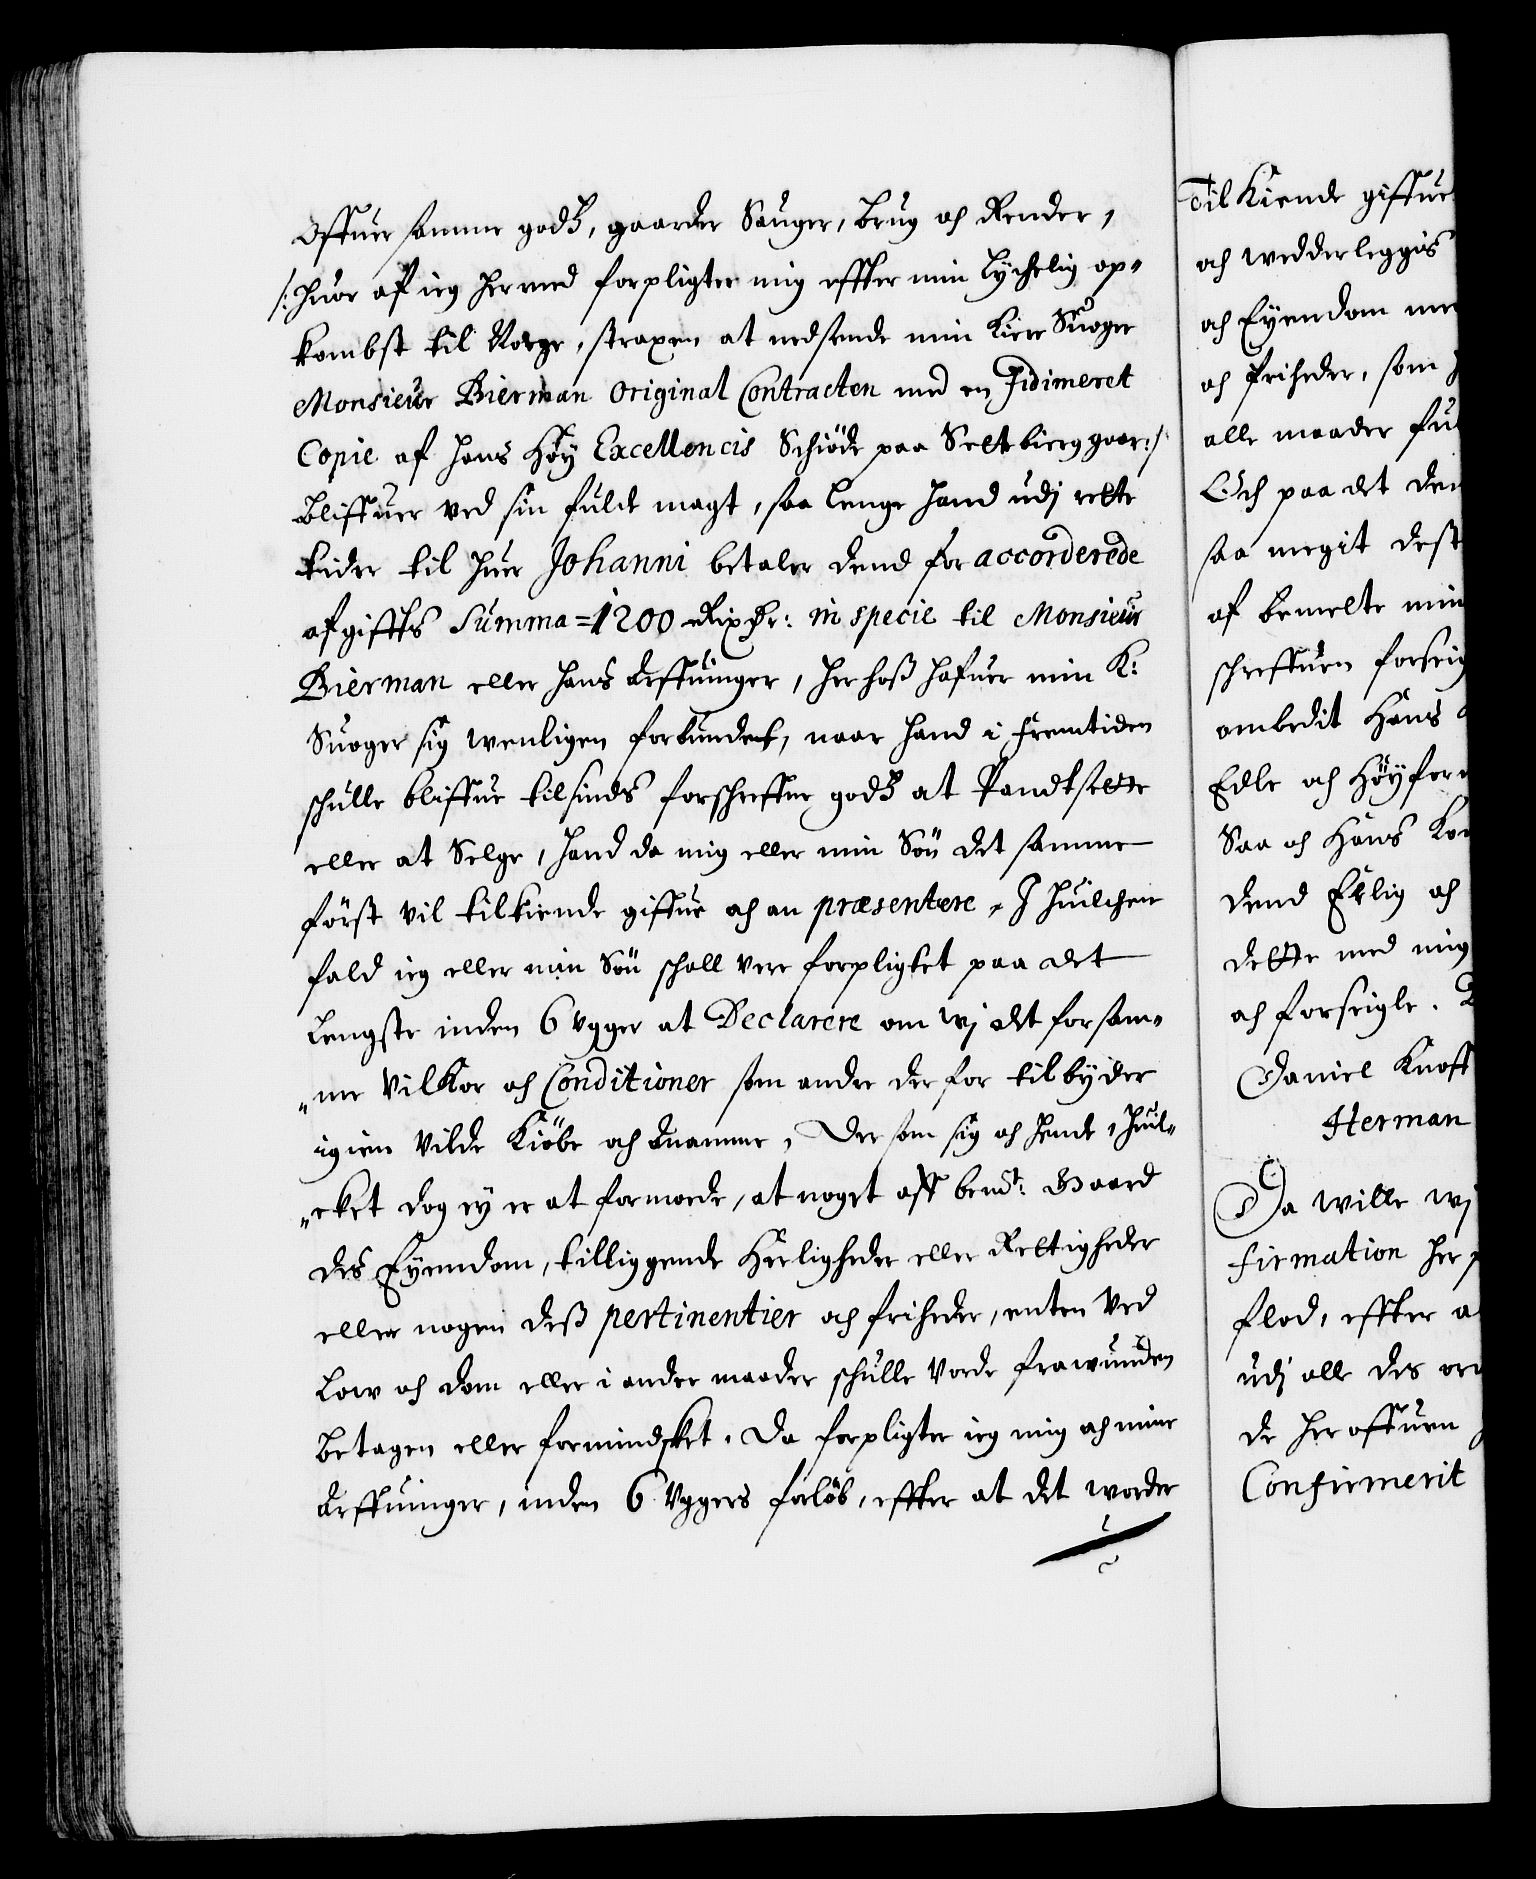 Offuer samme godz, gaarder Sauger, brug och Render,
/: huor af ieg hermed forpligter mig effter min lychelig op-
kombst til Norge, straxen at nedsende min kiere Suoger
Monsieur Bierman Original Contracten med en Fidimeret
Copie af hans Höy Excellencis Schiöde paa Seltebierg gaar:/
bliffuer ved sin fulde magt, saa lenge hand udj rette
tider til huer Johanni betaler dend for accorderede
afgiffts Summa = 1200 Rixdr: in specie til Monsieur
Bierman eller hans Arffuinger, her hoß hafuer min K:
Suoger sig wenligen forbundet, naar hand i fremtiden
schulle bliffue tilsinds forschreffne godz at Pandtsette
eller at Selge, hand da mig eller min Sön det samme
först vil tilkiende giffue och an præsentere, I huilchen
fald ieg eller min Sön schall vere forpligtet paa det
Lengste inden 6 Vgger at Declarere om wj det for sam-
"me Vilkor och Conditioner som andre der for tilbyder
igien Vilde Kiöbe och annamme, Der som sig och hende, huil-
"cket dog ey er at formoede, at noget aff bemt: Gaard
des Eyendom, tilliggende Herligheder eller Rettigheder
eller nogen deß pertinentier och friheder, enten Ved
Low och dom eller i andre maader schulle Vorde frawunden
betagen eller formindsket. Da forpligter ieg mig och mine
Arffuinger, inden 6 Vggers forlöb, effter at det worder
Til Kiende giffue
och wedderleggis
och Eyendom me
och friheder, som
alle maader ful
Och paa det den
saa megit dest
af bemelte min
schreffuen forseig
ombedit Hans
Edle och Höyfor
Saa och Hans Kon
dend Erlig och
dette med mig
och forseigle.
Daniel Knoff
Herman
Da wille wj
firmation her
flod, effter a
udj alle des or
de her offuen
Confirmerit